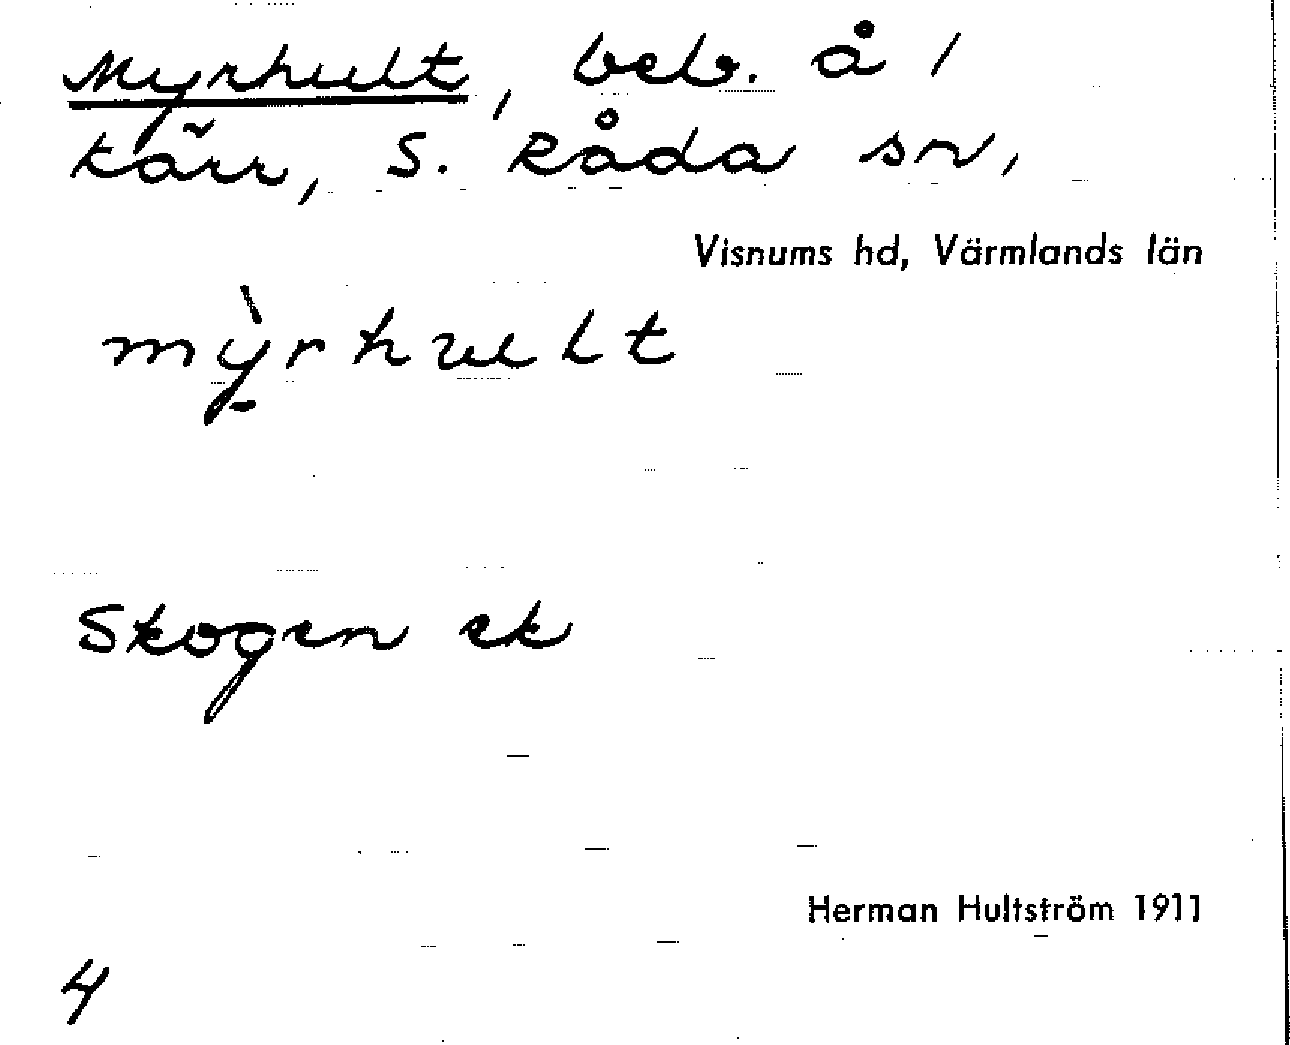 Myrhult, beb. å /
Kärr, S. Råda sn,
Visnums hd, Värmlands län
mỳrhult
Skogen ek
Herman Hultström 1911
4